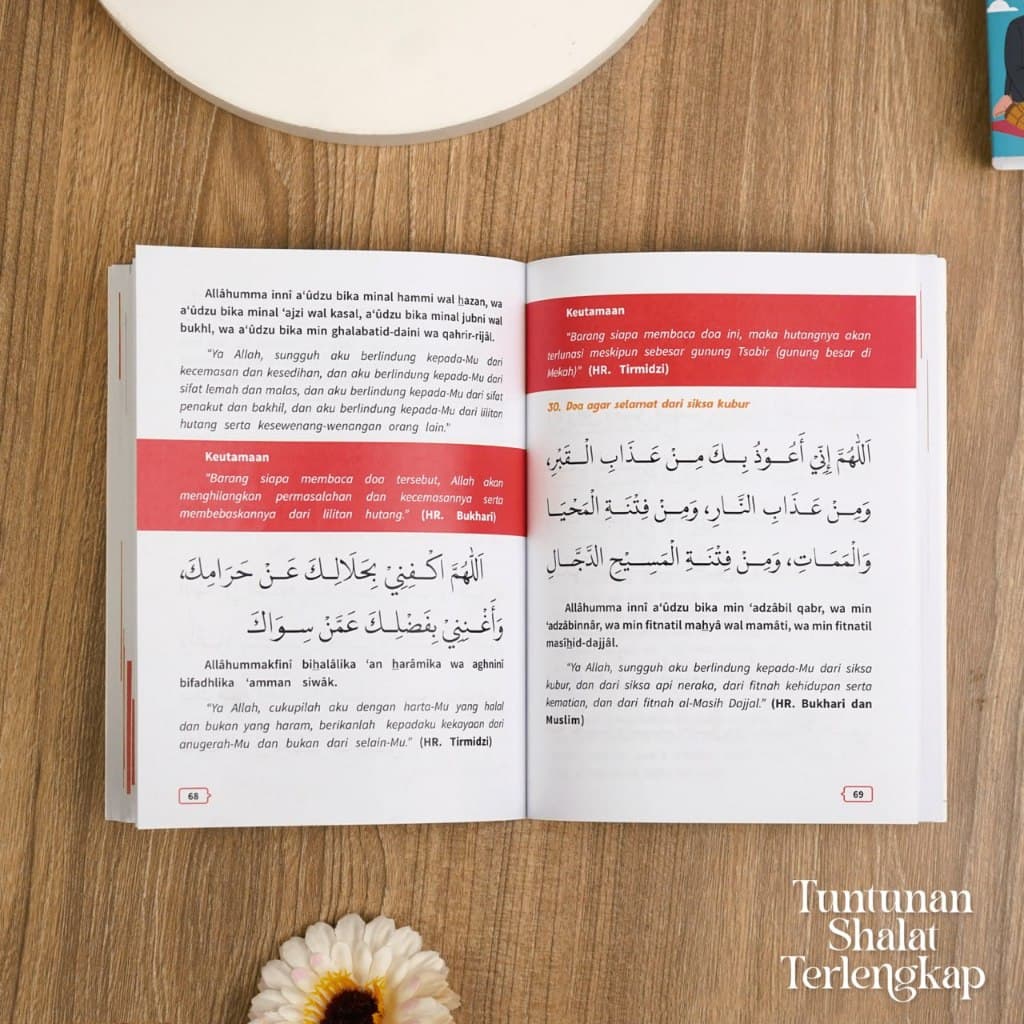 Allâhumma innî a‘ûdzu bika minal hammi wal ḫazan, wa
a‘ûdzu bika minal ‘ajzi wal kasal, a‘ûdzu bika minal jubni wal
bukhl, wa a‘ûdzu bika min ghalabatid-daini wa qahrir-rijâl.
"Ya Allah, sungguh aku berlindung kepada-Mu dari
kecemasan dan kesedihan, dan aku berlindung kepada-Mu dari
sifat lemah dan malas, dan aku berlindung kepada-Mu dari sifat
penakut dan bakhil, dan aku berlindung kepada-Mu dari lilitan
hutang serta kesewenang-wenangan orang lain."
Keutamaan
"Barang siapa membaca doa tersebut, Allah akan
menghilangkan permasalahan dan kecemasannya serta
membebaskannya dari lilitan hutang." (HR. Bukhari)
اَللّٰهُمَّ اكْفِنِيْ بِحَلَالِكَ عَنْ حَرَامِكَ،
وَأَغْنِنِيْ بِفَضْلِكَ عَمَّنْ سِوَاكَ
Allâhummakfinî biḫalâlika ‘an ḫarâmika wa aghninî
bifadhlika ‘amman siwâk.
"Ya Allah, cukupilah aku dengan harta-Mu yang halal
dan bukan yang haram, berikanlah kepadaku kekayaan dari
anugerah-Mu dan bukan dari selain-Mu." (HR. Tirmidzi)
68
Keutamaan
"Barang siapa membaca doa ini, maka hutangnya akan
terlunasi meskipun sebesar gunung Tsabir (gunung besar di
Mekah)" (HR. Tirmidzi)
30. Doa agar selamat dari siksa kubur
اَللّٰهُمَّ إِنِّيْ أَعُوْذُ بِكَ مِنْ عَذَابِ الْقَبْرِ،
وَمِنْ عَذَابِ النَّارِ، وَمِنْ فِتْنَةِ الْمَحْيَا
وَالْمَمَاتِ، وَمِنْ فِتْنَةِ الْمَسِيْحِ الدَّجَّالِ
Allâhumma innî a‘ûdzu bika min ‘adzâbil qabr, wa min
‘adzâbinnâr, wa min fitnatil maḫyâ wal mamâti, wa min fitnatil
masîḫid-dajjâl.
"Ya Allah, sungguh aku berlindung kepada-Mu dari siksa
kubur, dan dari siksa api neraka, dari fitnah kehidupan serta
kematian, dan dari fitnah al-Masih Dajjal." (HR. Bukhari dan
Muslim)
69
Tuntunan
Shalat
Terlengkap